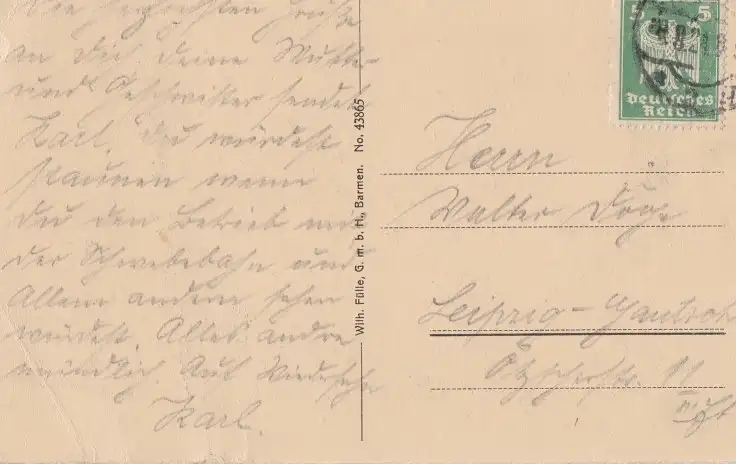 Die herzlichsten Grüße
an Dir deine Mutter
und Geschwister sendet
Karl. Du würdest
staunen wenn
Du den Betrieb mit
der Schwebebahn und
Allem andern sehen
würdest. Alles andre
mündlich. Auf Wiedersehn
Karl.
Wilh. Fülle, G. m. b. H., Barmen. No. 43865
5
Deutsches
Reich
Herrn
Walter
Leipzig-
11